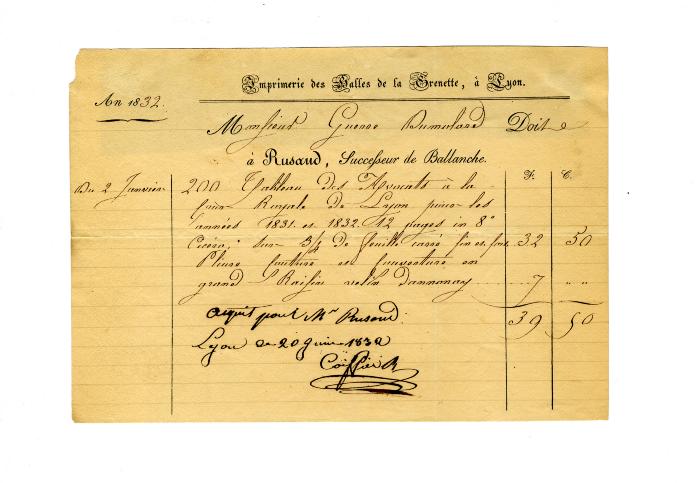 Imprimerie des Halles de la Grenette, à Lyon.
An 1832.
Monsieur Guerre Dumolard Doit
à Rusand, Successeur de Ballanche.
F. C.
Du 2 Janvier 200 Tableau des Avocats à la
Cour Royale de Lyon pour les
années 1831 et 1832. 12 pages in 8°
Cicéro, sur 3/4 de feuille carré fin et. 32 50
Pliure couture et couverture en
grand Raisin velin d'annonay 7 " "
acquit pour Mr Rusand. 39 50
Lyon ce 20 Juin 1832